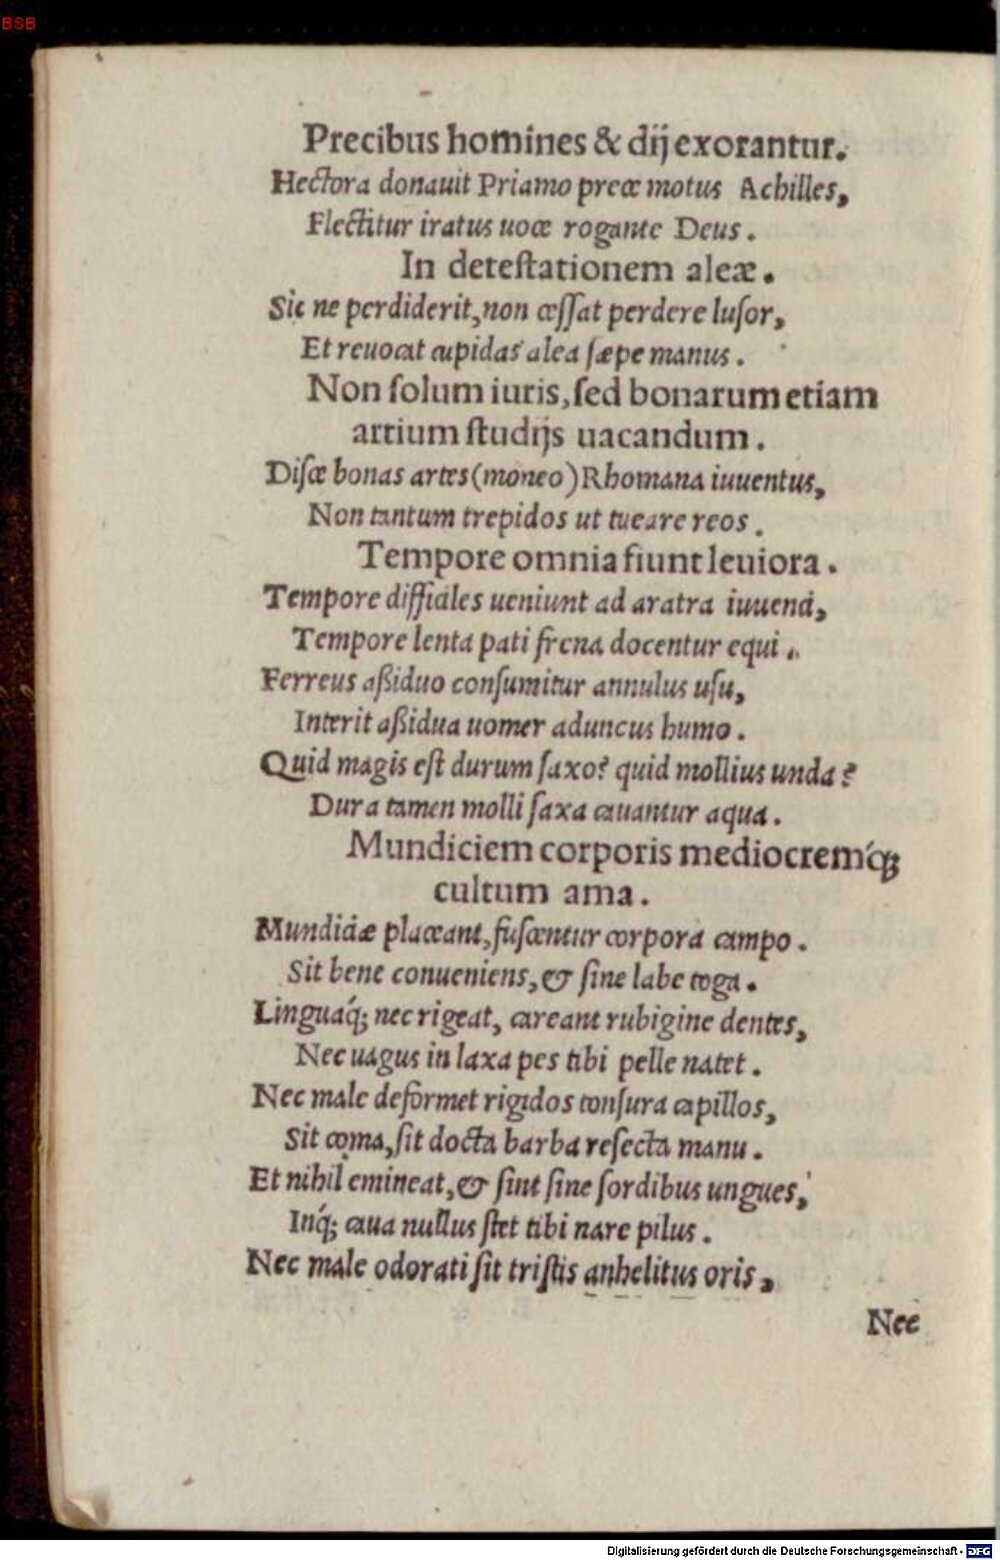 BSB
Precibus homines & dij exorantur.
Hectora donauit Priamo prece motus Achilles,
Flectitur iratus uoce rogante Deus.
In detestationem aleæ.
Sic ne perdiderit, non cessat perdere lusor,
Et reuocat cupidas alea sæpe manus.
Non solum iuris, sed bonarum etiam
artium studijs uacandum.
Disce bonas artes (moneo) Rhomana iuuentus,
Non tantum trepidos ut tueare reos.
Tempore omnia fiunt leuiora.
Tempore difficiles ueniunt ad aratra iuuenci,
Tempore lenta pati frena docentur equi.
Ferreus aßiduo consumitur annulus usu,
Interit aßidua uomer aduncus humo.
Quid magis est durum saxo? quid mollius unda?
Dura tamen molli saxa cauantur aqua.
Mundiciem corporis mediocremq́;
cultum ama.
Mundiciæ placeant, fuscentur corpora campo.
Sit bene conueniens, & sine labe toga.
Linguaq́; nec rigeat, careant rubigine dentes,
Nec uagus in laxa pes tibi pelle natet.
Nec male deformet rigidos tonsura capillos,
Sit coma, sit docta barba resecta manu.
Et nihil emineat, & sint sine sordibus ungues,
Inq́; caua nullus stet tibi nare pilus.
Nec male odorati sit tristis anhelitus oris,
Nec
Digitalisierung gefördert durch die Deutsche Forschungsgemeinschaft - DFG